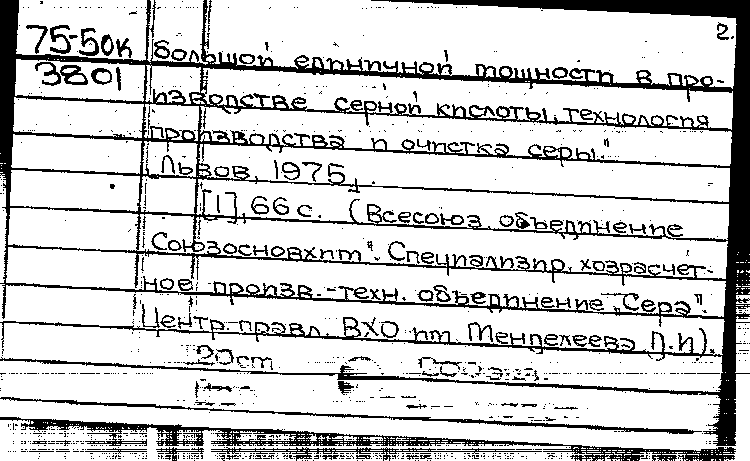 2.
75-50к
3801
большой единичной мощности в про-
изводстве серной кислоты, технология
производства и очистка серы."
Львов, 1975.
[1], 66 с. (Всесоюз. объединение
Союзосновхим". Специализир. хозрасчет-
ное произв.-техн. объединение „Сера".
Центр. правл. ВХО им. Менделеева Д.И).
20 ст